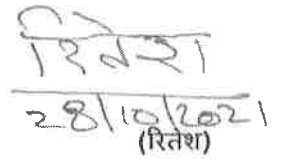 रितेश
28/10/2021
(रितेश)